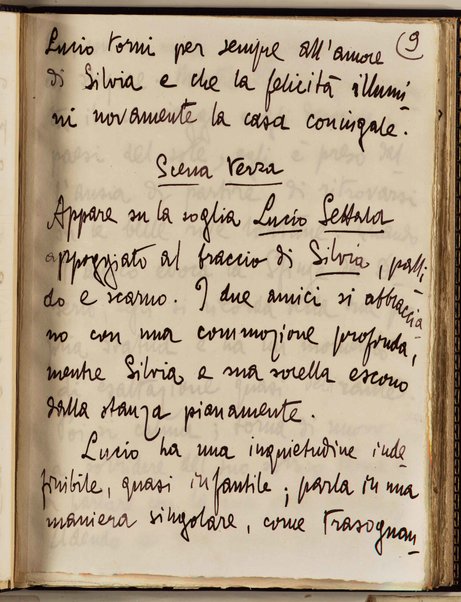 9
Lucio torni per sempre all'amore
di Silvia e che la felicità illumi
ni novamente la casa coniugale.
Scena Terza
Appare su la soglia Lucio Settala
appoggiato al braccio di Silvia, palli
do e scarno. I due amici si abbraccia
no con una commozione profonda,
mentre Silvia e sua sorella escono
dalla stanza pianamente.
Lucio ha una inquietudine inde
finibile, quasi infantile; parla in una
maniera singolare, come trasognan